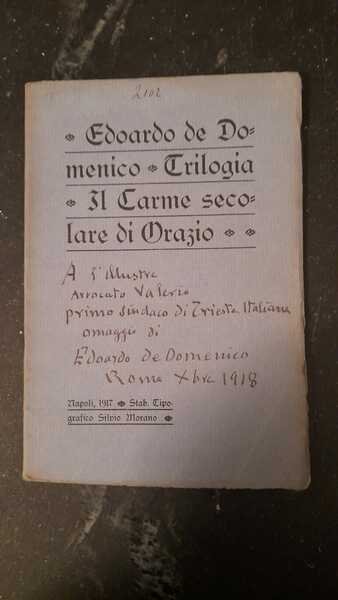 2102
Edoardo de Do-
menico Trilogia
Il Carme seco-
lare di Orazio
A l'illustre
Avvocato Valerio
primo sindaco di Trieste Italiana
omaggio di
Edoardo De Domenico
Roma Xbre 1918
Napoli, 1917 Stab. Tipo-
grafico Silvio Morano